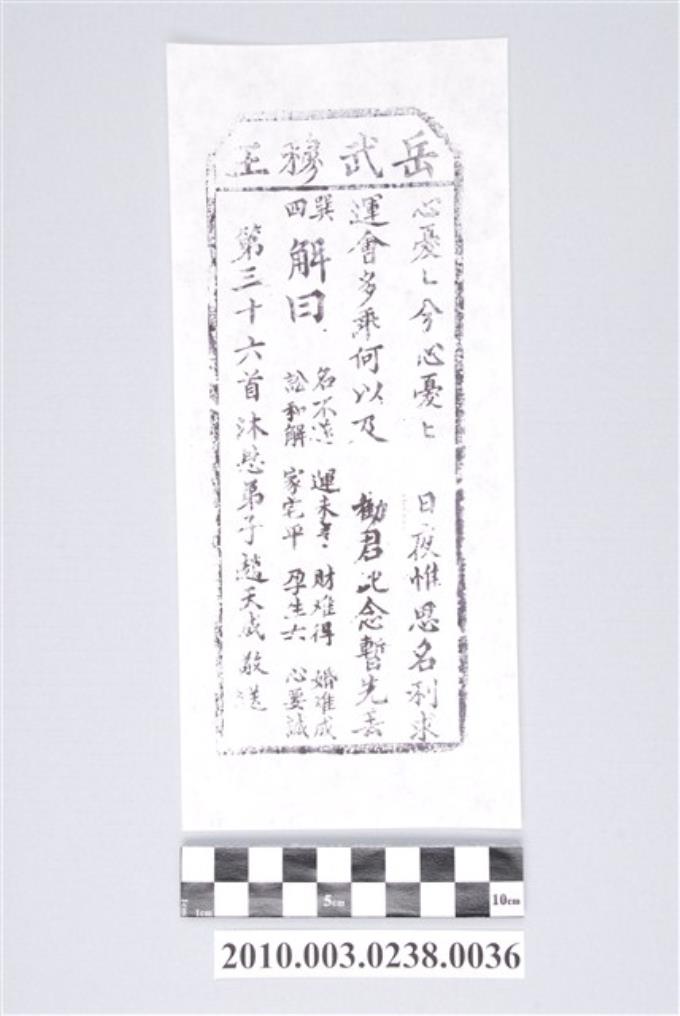 岳武穆王
心憂〻兮心憂〻 日夜惟思名利求
運會多乖何以及 勸君此念暫先丟
巽四
解曰
名不達 運未亨 財难得 婚难成
訟和解 家宅平 孕生六 心要誠
第三十六首沐恩弟子趙天成敬送
1cm 5cm 10cm
2010.003.0238.0036